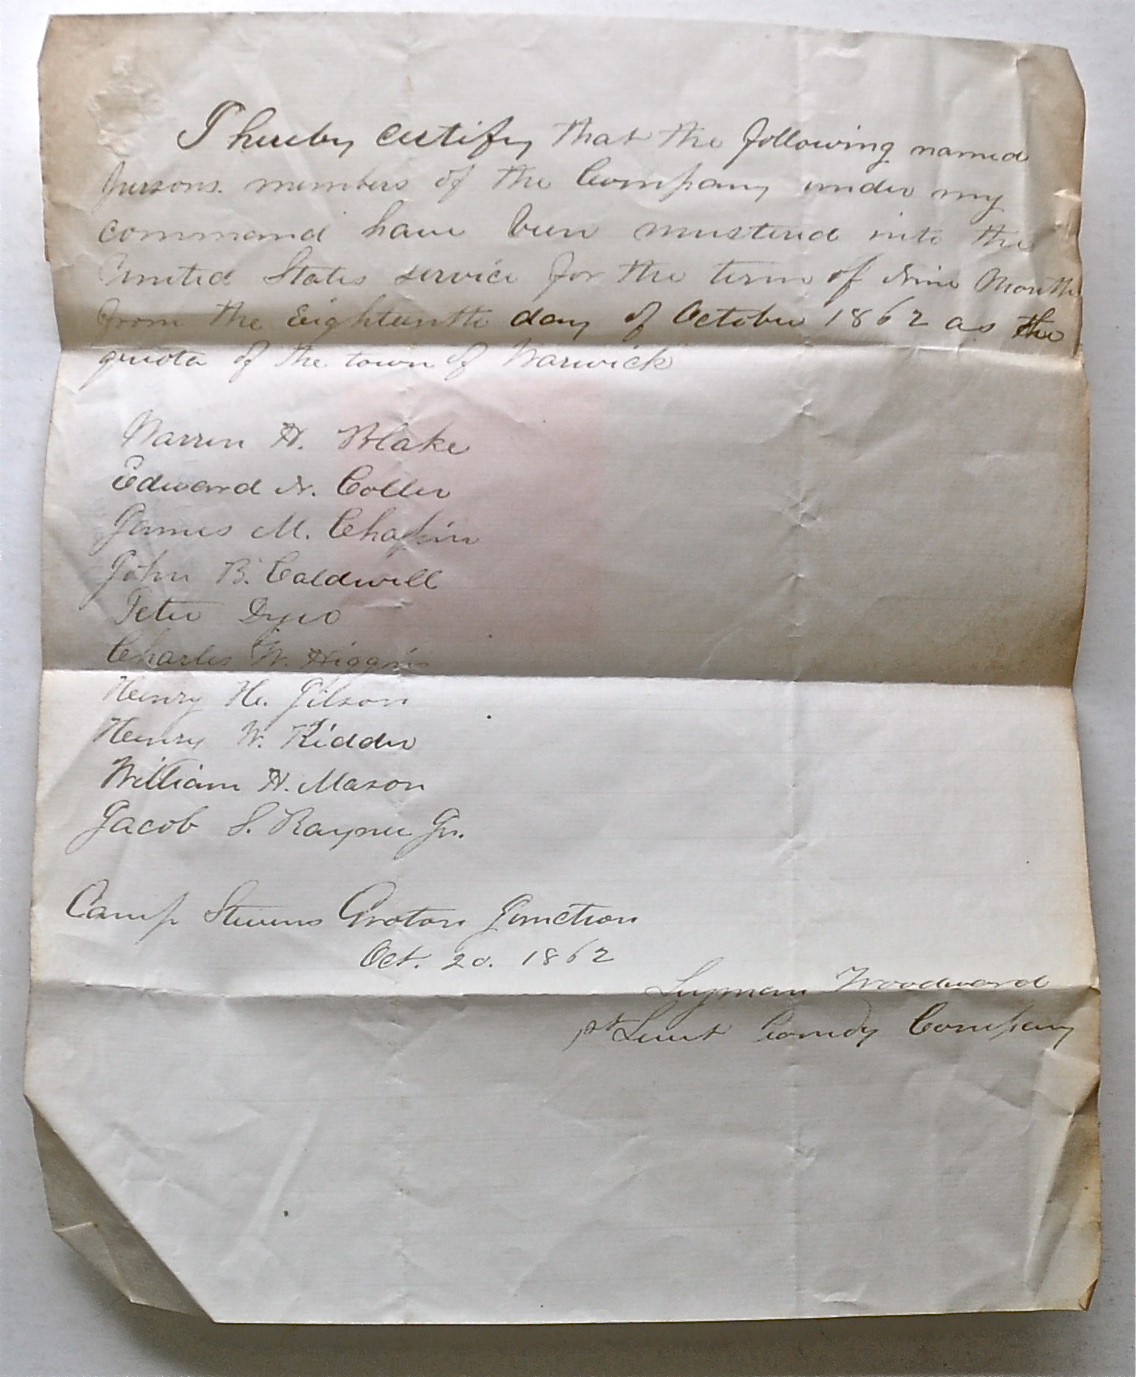 I hereby certify that the following named
persons. members of the Company under my
command have been mustered into the
United States service for the term of Nine Months
from the Eighteenth day of October 1862 as the
quota of the town of Warwick
Warren H. Blake
Edward N. Coller
James M. Chapin
John B. Caldwell
Peter Dyer
Charles W. Higgins
Henry H. Gilson
Henry W. Kidder
William H. Mason
Jacob S. Rayner Jr.
Camp Stevens Groton Junction
Oct. 20. 1862
Lyman Woodward
1st Lieut Comdg Company